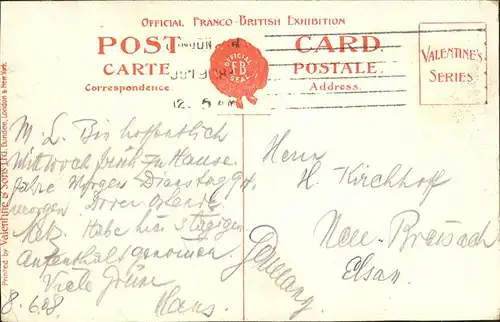 OFFICIAL FRANCO-BRITISH EXHIBITION
POST CARD
CARTE POSTALE
Correspondence. Address.
VALENTINE'S
SERIES
OFFICIAL
FB
SEAL
LONDON
12. 5 AM
Printed by Valentine & Sons Ltd. Dundee, London & New York.
M. L. Bin hoffentlich
Mittwoch früh zu Hause
fahre Morgen Dienstag 9H
morgen Dover Ostende
Metz. Habe hier 3 tägigen
Aufenthalt genommen
Viele Grüsse
Hans.
8.6.08
Herrn
H. Kirchhoff
Neu-Breisach
Elsass
Germany